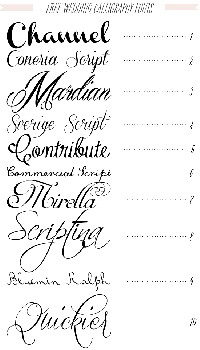 FREE WEDDING CALLIGRAPHY FONTS
Channel 1
Coneria Script 2
Mardian 3
Sverige Script 4
Contribute 5
Commercial Script 6
Mirella 7
Scriptina 8
Bluemin Ralph 9
Quickier 10